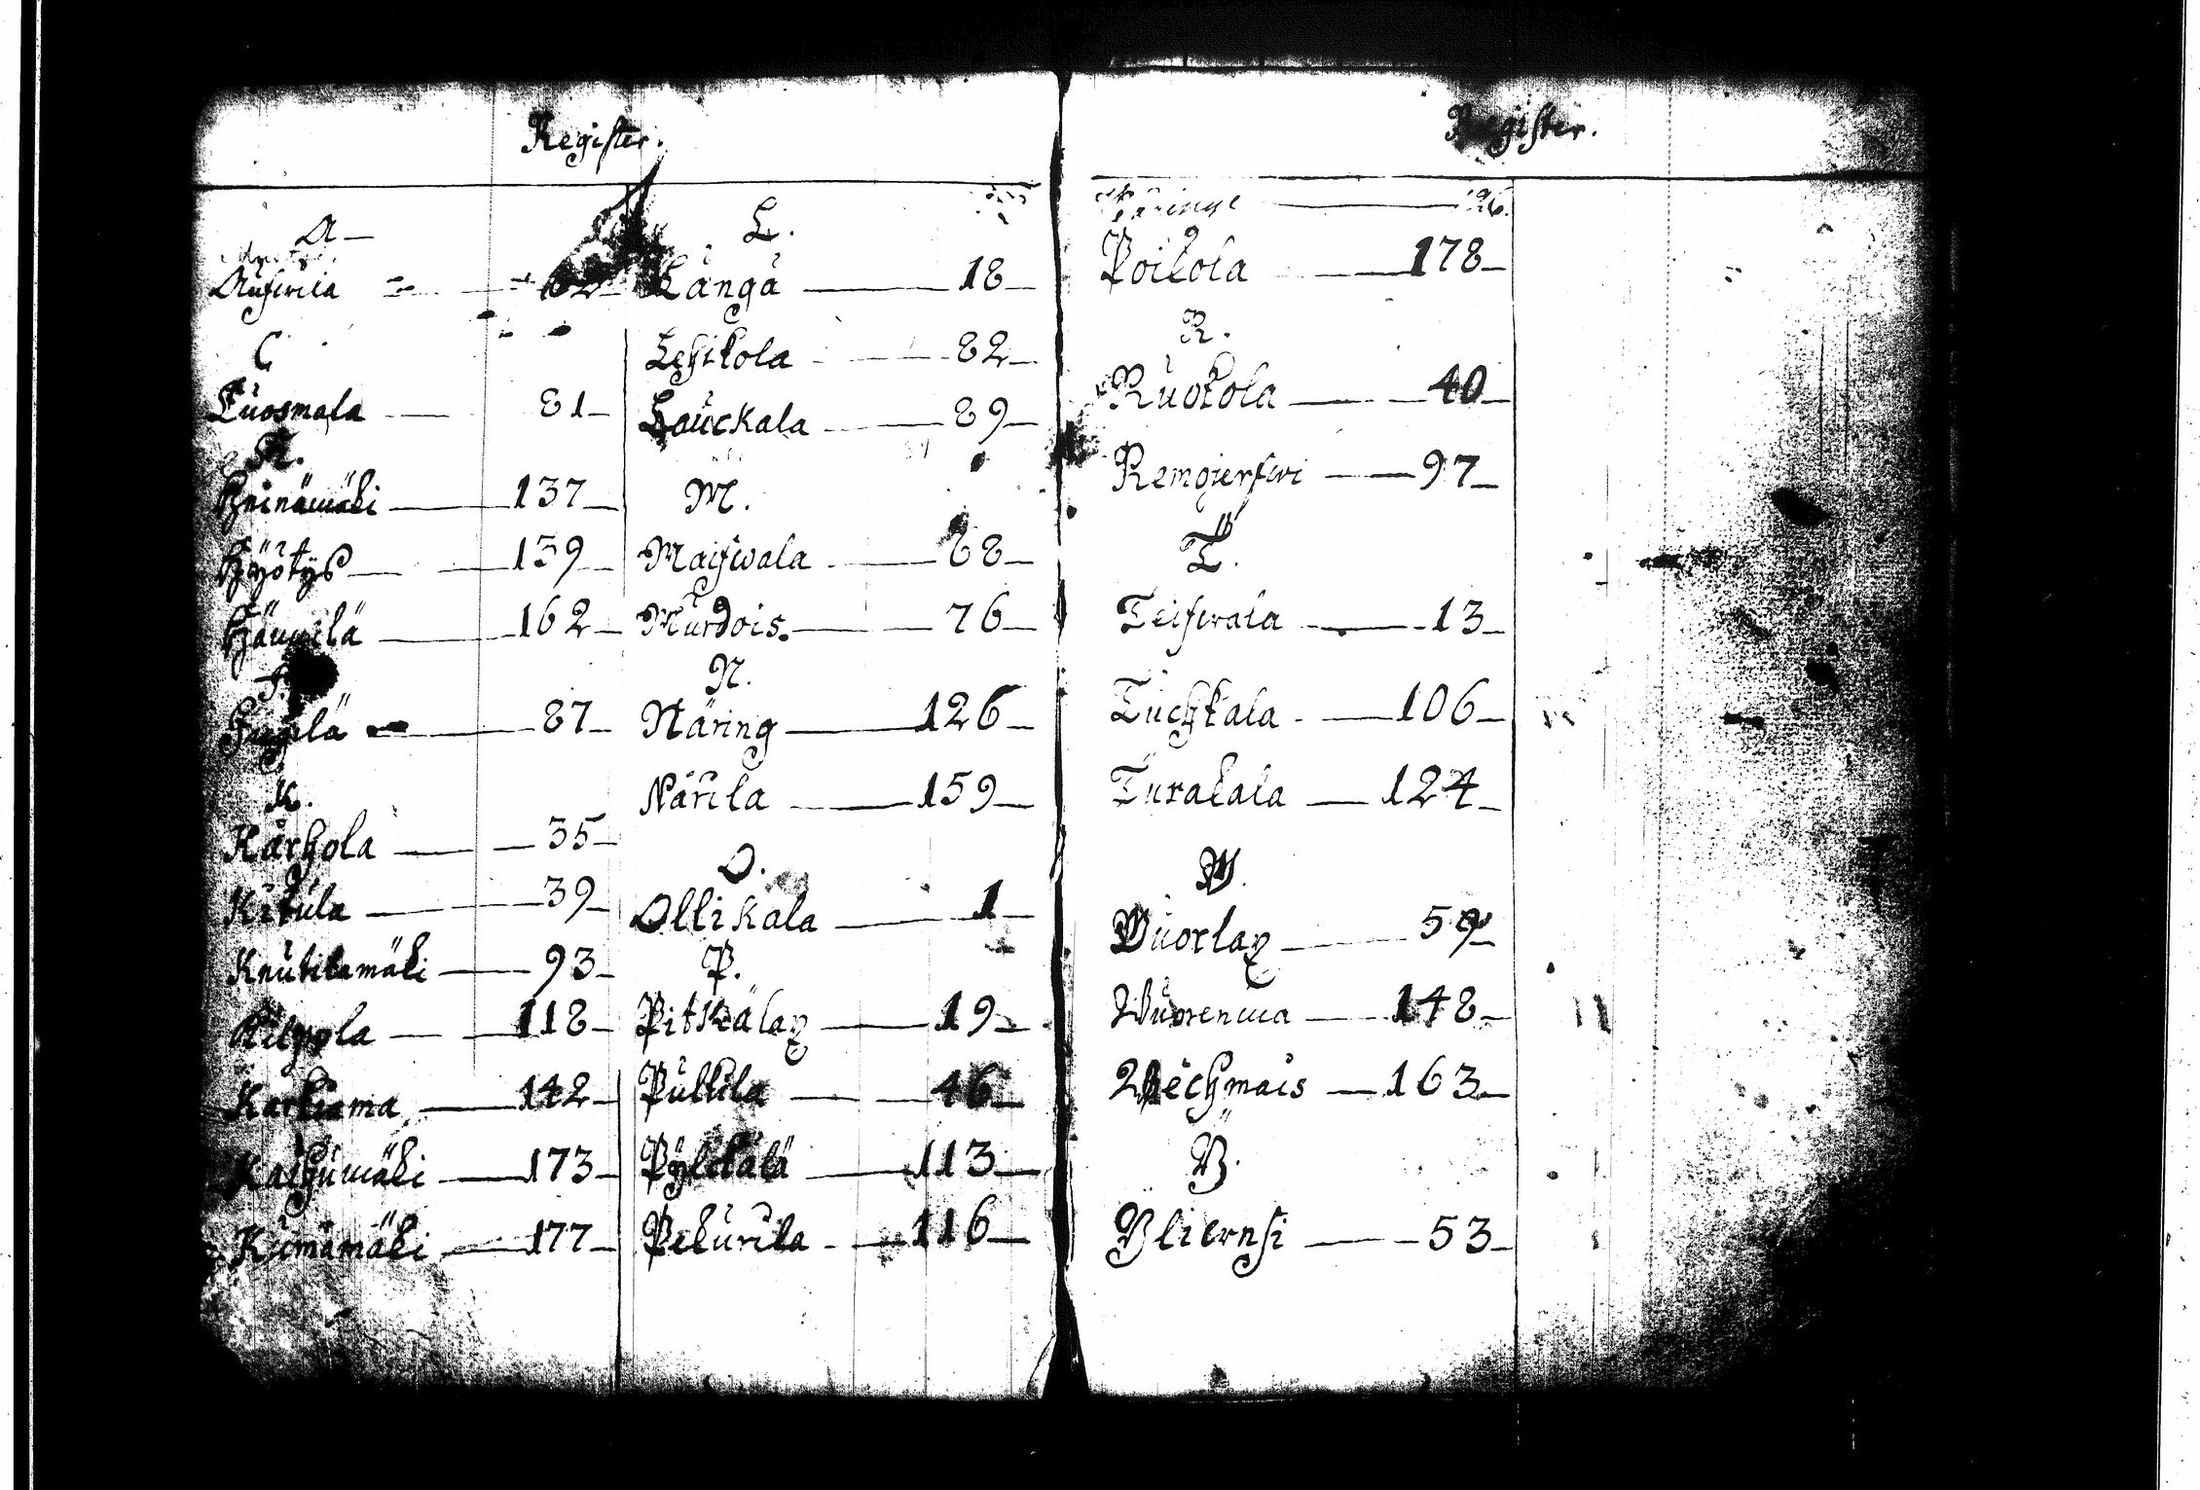 Register.
A
C
Luosmala 81
H.
Heinämäki 137
Hyötys 139
162
87
K.
Karhola 35
Kitula 39
Knutilamäki 93
Kilpola 118
Karkiama 142
Kaihumäki 173
Kiimämäki 177
L.
Långå 18
Lehikola 82
Lauckala 89
M.
Maiswala 88
Murdois. 76
N.
Näring 126
Närila 159
O.
Ollikala 1
P.
Pitkälax 19
Pukila 46
Pylckälä 113
Pekurila 116
Register.
Poikola 178
R.
Ruokola 40
Remojerfwi 97
T.
Teiswala 13
Tuchkala 106
Turakala 124
W.
Wuorlax 59
Wuorenma 148
Wechmais 163
Y.
Ylikrnsi 53